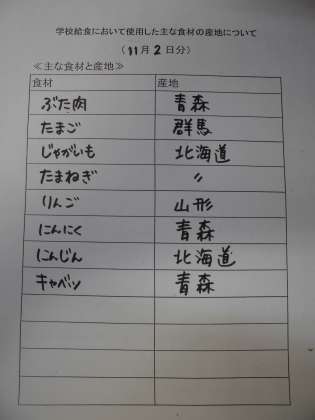 学校給食において使用した主な食材の産地について
(11月2日分)
≪主な食材と産地≫
食材 産地
ぶた肉 青森
たまご 群馬
じゃがいも 北海道
たまねぎ 〃
りんご 山形
にんにく 青森
にんじん 北海道
キャベツ 青森